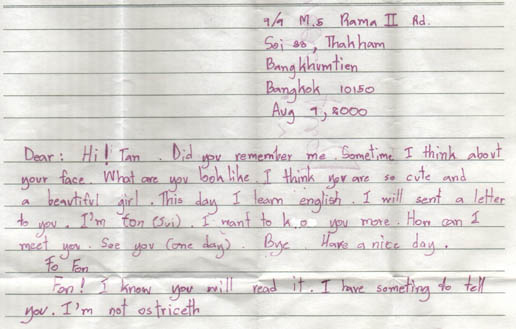 9/9 M.5 Rama II Rd.
Soi 88, Thahham
Bangkhumtien
Bangkok 10150
Aug 9, 2000
Dear: Hi! Tan. Did you remember me. Sometime I think about
your face. What are you look like I think you are so cute and
a beautiful girl. This day I learn english. I will sent a letter
to you. I'm Ton (Sui). I want to k,o you more. How can I
meet you. See you (one day). Bye. Have a nice day.
To Fon
Fon! I know you will read it. I have someting to tell
you. I'm not ostriceth